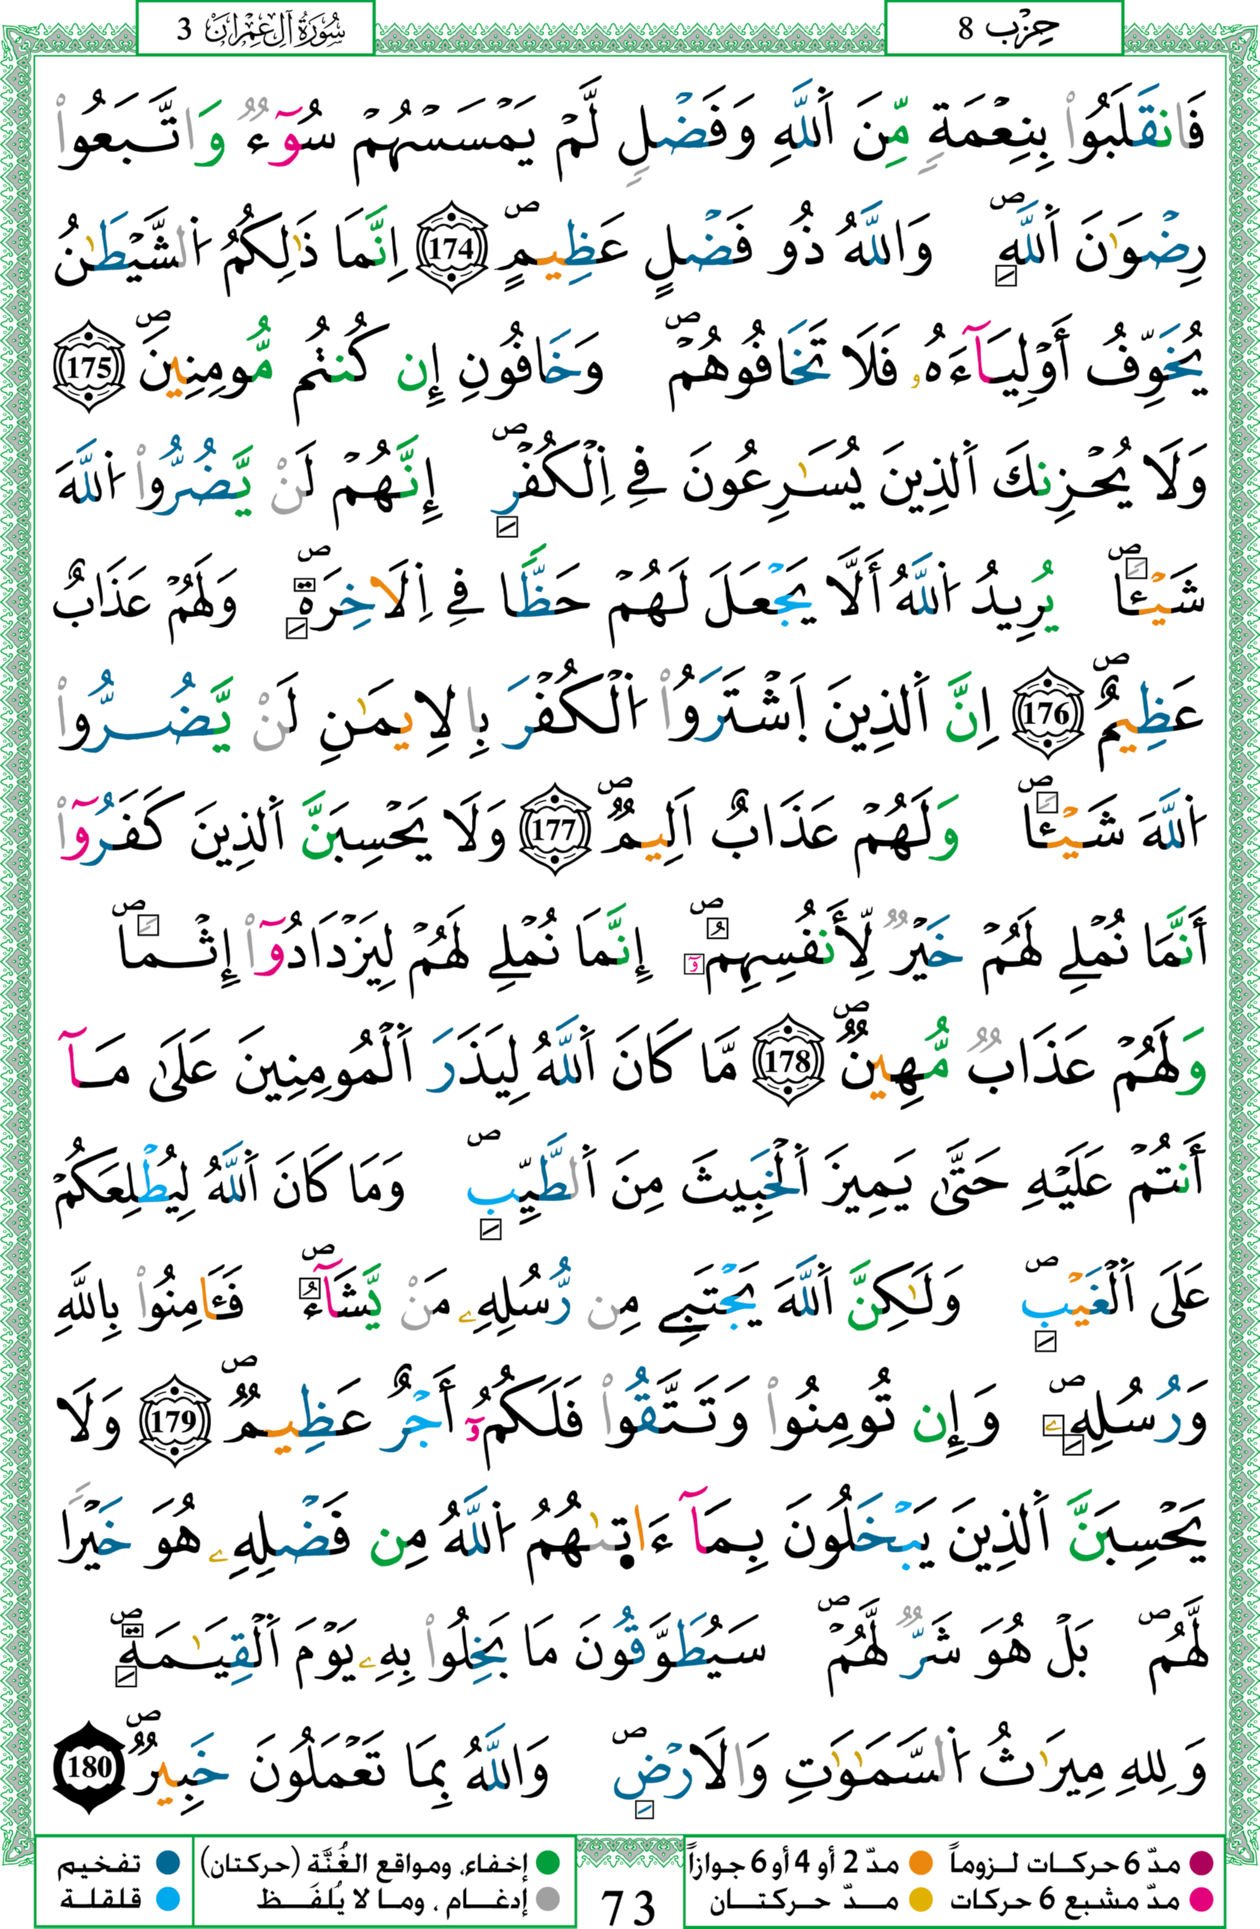 سُورَةُ آلِ عِمْرَانَ 3
حِزْب 8
فَانقَلَبُواْ بِنِعْمَةٖ مِّنَ اَ۬للَّهِ وَفَضْلٖ لَّمْ يَمْسَسْهُمْ سُوٓءٞ وَاتَّبَعُواْ
رِضْوَٰنَ اَ۬للَّهِۖ وَاللَّهُ ذُو فَضْلٍ عَظِيمٍۖ 174 اِنَّمَا ذَٰلِكُمُ اُ۬لشَّيْطَٰنُ
يُخَوِّفُ أَوْلِيَآءَهُۥ فَلَا تَخَافُوهُمْۖ وَخَافُونِ إِن كُنتُم مُّومِنِينَۖ 175
وَلَا يُحْزِنكَ اَ۬لذِينَ يُسَٰرِعُونَ فِے اِ۬لْكُفْرِۖ إِنَّهُمْ لَنْ يَّضُرُّواْ اُ۬للَّهَ
شَيْـٔاٗۖ يُرِيدُ اُ۬للَّهُ أَلَّا يَجْعَلَ لَهُمْ حَظّاٗ فِے اِ۬لَاخِرَةِۖ وَلَهُمْ عَذَابٌ
عَظِيمٌۖ 176 اِنَّ اَ۬لذِينَ اَ۪شْتَرَوُاْ اُ۬لْكُفْرَ بِالِايمَٰنِ لَنْ يَّضُرُّواْ
اُ۬للَّهَ شَيْـٔاٗۖ وَلَهُمْ عَذَابٌ اَلِيمٞۖ 177 وَلَا يَحْسِبَنَّ اَ۬لذِينَ كَفَرُوٓاْ
أَنَّمَا نُمْلِے لَهُمْ خَيْرٞ لِّأَنفُسِهِمُۥٓۖ إِنَّمَا نُمْلِے لَهُمْ لِيَزْدَادُوٓاْ إِثْماٗۖ
وَلَهُمْ عَذَابٞ مُّهِينٞۖ 178 مَّا كَانَ اَ۬للَّهُ لِيَذَرَ اَ۬لْمُومِنِينَ عَلَىٰ مَآ
أَنتُمْ عَلَيْهِ حَتَّىٰ يَمِيزَ اَ۬لْخَبِيثَ مِنَ اَ۬لطَّيِّبِۖ وَمَا كَانَ اَ۬للَّهُ لِيُطْلِعَكُمْ
عَلَى اَ۬لْغَيْبِۖ وَلَٰكِنَّ اَ۬للَّهَ يَجْتَبِے مِن رُّسُلِهِۦ مَنْ يَّشَآءُۖ فَـَٔامِنُواْ بِاللَّهِ
وَرُسُلِهِۦۖ وَإِن تُومِنُواْ وَتَتَّقُواْ فَلَكُمُۥٓ أَجْرٌ عَظِيمٞۖ 179 وَلَا
يَحْسِبَنَّ اَ۬لذِينَ يَبْخَلُونَ بِمَآ ءَات۪يٰهُمُ اُ۬للَّهُ مِن فَضْلِهِۦ هُوَ خَيْراٗ
لَّهُمْۖ بَلْ هُوَ شَرّٞ لَّهُمْۖ سَيُطَوَّقُونَ مَا بَخِلُواْ بِهِۦ يَوْمَ اَ۬لْقِيَٰمَةِۖ
وَلِلهِ مِيرَٰثُ اُ۬لسَّمَٰوَٰتِ وَالَارْضِۖ وَاللَّهُ بِمَا تَعْمَلُونَ خَبِيرٞۖ 180
مدّ 6 حركات لـزوماً
مدّ 2 أو 4 أو 6 جوازاً
إخفاء، ومواقع الغُنَّة (حركتان)
تفخيم
مدّ مشبع 6 حركات
مدّ حركتان
إدغام ، وما لا يُلفَظ
قلقلة
73